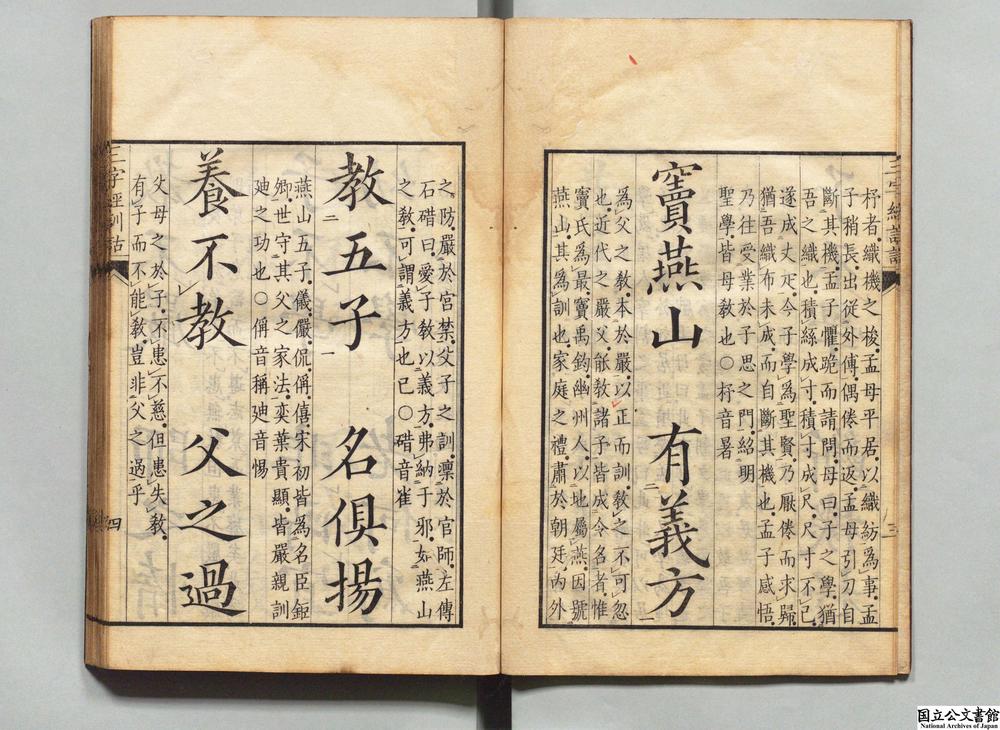 杼者織機之梭孟母平居以織紡為事孟
子稍長出從外傅偶倦而返孟母引刀自
斷其機孟子懼跪而請問母曰子之學猶
吾之織也積絲成寸積寸成尺尺寸不已
遂成丈疋今子學為聖賢乃厭倦而求歸
猶吾織布未成而自斷其機也孟子感悟
乃往受業於子思之門紹明
聖學皆母教也○杼音暑
竇燕山 有義方
為父之教本於嚴以正而訓教之不可忽
也近代之嚴父能教諸子皆成令名者惟
竇氏為最竇禹鈞幽州人以地屬燕因號
燕山其為訓也家庭之禮肅於朝廷內外
三
之防嚴於宮禁父子之訓凛於官師左傳
石碏曰愛子教以義方弗納于邪如燕山
之教可謂義方也已○碏音崔
教五子 名俱揚
燕山五子儀儼侃偁僖宋初皆為名臣鉅
卿世守其父之家法奕葉貴顯皆嚴親訓
廸之功也○偁音稱廸音惕
養不教 父之過
父母之於子不患不慈但患失教
有子而不能教豈非父之過乎
三字經訓詁
四
国立公文書館
National Archives of Japan